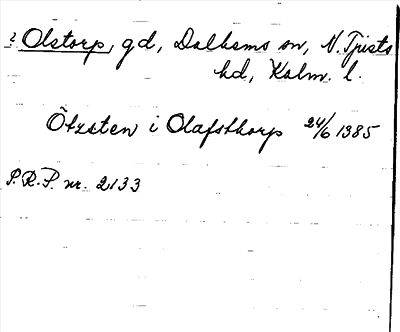 ? Olstorp, gd, Dalhems sn, N. Tjusts
hd, Kalm. l.
Ötzsten i Olafsthorp 24/6 1385
P.R.P. nr. 2133